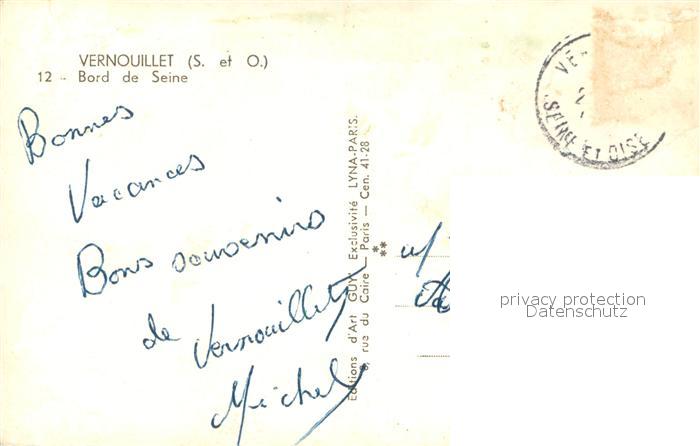 VERNOUILLET (S. et O.)
12 - Bord de Seine
Bonnes
Vacances
Bons souvenirs
de Vernouillet
Michel
Editions d'Art GUY Exclusivité LYNA-PARIS.
8, rue du Caire — Paris — Cen. 41-28
**
SEINE ET OISE
privacy protection
Datenschutz